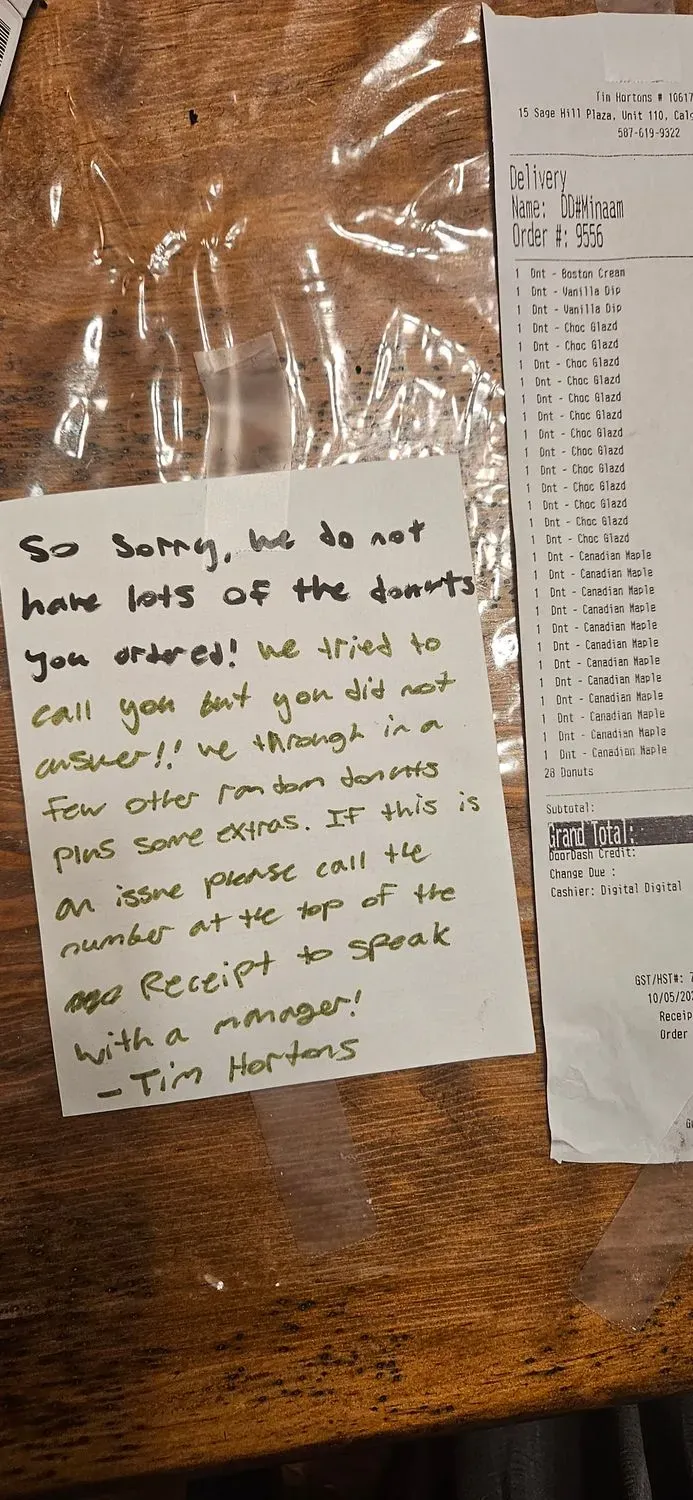 So sorry, we do not
have lots of the donuts
you ordered! we tried to
call you but you did not
answer!! we through in a
few other random donuts
plus some extras. If this is
an issue please call the
number at the top of the
Receipt to speak
with a manager!
- Tim Hortons
Tim Hortons # 10617
15 Sage Hill Plaza, Unit 110, Calg
587-619-9322
Delivery
Name: DD#Minaam
Order #: 9556
1 Dnt - Boston Cream
1 Dnt - Vanilla Dip
1 Dnt - Vanilla Dip
1 Dnt - Choc Glazd
1 Dnt - Choc Glazd
1 Dnt - Choc Glazd
1 Dnt - Choc Glazd
1 Dnt - Choc Glazd
1 Dnt - Choc Glazd
1 Dnt - Choc Glazd
1 Dnt - Choc Glazd
1 Dnt - Choc Glazd
1 Dnt - Choc Glazd
1 Dnt - Choc Glazd
1 Dnt - Choc Glazd
1 Dnt - Choc Glazd
1 Dnt - Canadian Maple
1 Dnt - Canadian Maple
1 Dnt - Canadian Maple
1 Dnt - Canadian Maple
1 Dnt - Canadian Maple
1 Dnt - Canadian Maple
1 Dnt - Canadian Maple
1 Dnt - Canadian Maple
1 Dnt - Canadian Maple
1 Dnt - Canadian Maple
1 Dnt - Canadian Maple
1 Dnt - Canadian Maple
28 Donuts
Subtotal:
Grand Total:
DoorDash Credit:
Change Due :
Cashier: Digital Digital
GST/HST#: 7
10/05/202
Receip
Order